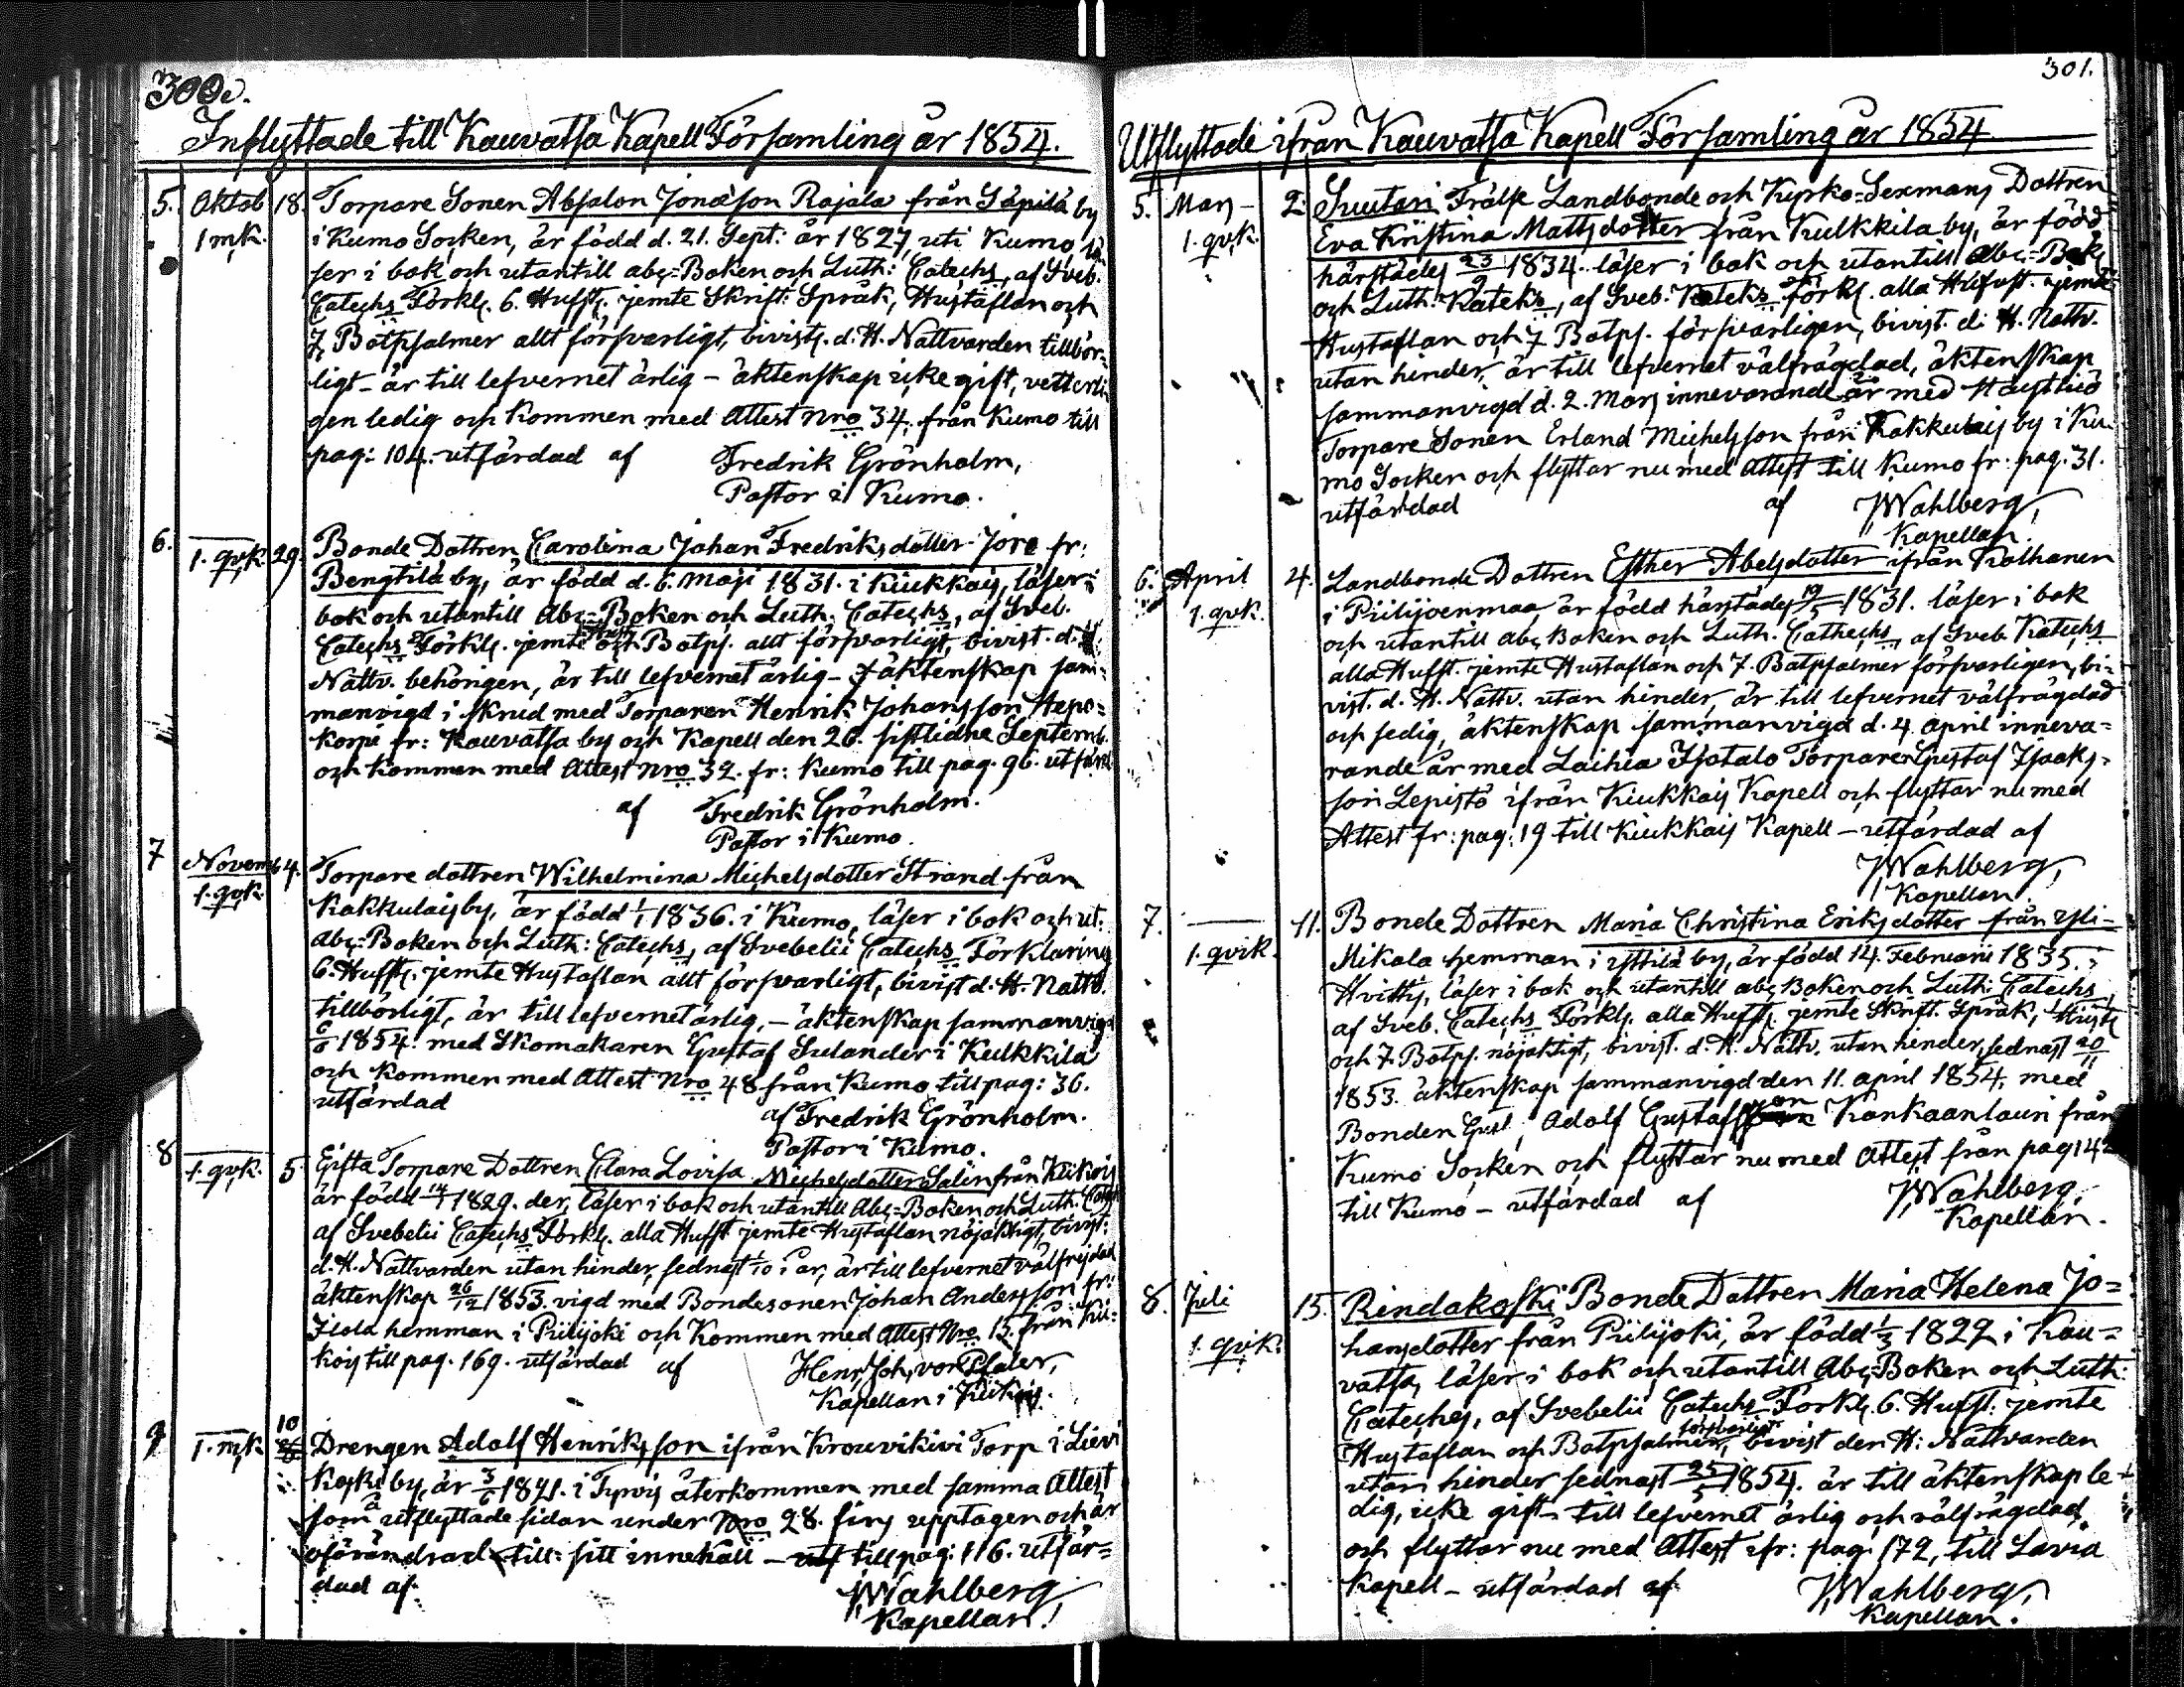 300.
Inflyttade till Kauvatsa Kapell Församling år 1854.
5. Oktob 18. Torpare Sonen Absalon Jonasson Rajala från Säpilä by
1 mk. i Kumo Socken, är född d. 21. Sept: år 1827, uti Kumo, lä-
ser i bok och utantill abc=Boken och Luth: Catechs, af Sveb.
Catechs Förkl. 6. Hufst. jemte Skrift: Språk, Hustaflan och
7. Botpsalmer allt försvarligt, bivist. d. H. Nattvarden tillbör-
ligt – är till lefvernet ärlig – äktenskap icke gift, vetterli-
gen ledig och kommen med Attest Nro 34. från Kumo till
pag: 104. utfärdad af Fredrik Grönholm,
Pastor i Kumo.
6. 1. qvk. 29. Bonde Dottren Carolina Johan Fredriksdotter Jore fr:
Bengtilä by, är född d. 6. Maji 1831. i Kiukkais, läser i
bok och utantill Abc=Boken och Luth. Catechs, af Sveb.
Catechs Förkl. jemte och Botps. allt försvarligt, bivist. d. H.
Nattv. behörigen, är till lefvernet ärlig – äktenskap sam-
manvigd i skrud med Torparen Henrik Johansson Hepo=
korpi fr: Kauvatsa by och Kapell den 26. sistlidne Septemb.
och kommen med Attest Nro 32. fr: Kumo till pag. 96. utfärd.
af Fredrik Grönholm.
Pastor i Kumo.
7 Novemb 4. Torpare dottren Wilhelmina Michelsdotter Strand från
1. qvk. Kakkulais by, är född 1/1 1836. i Kumo, läser i bok och ut.
Abc=Boken och Luth: Catechs, af Svebelii Catechs Förklaring
6. Hufst. jemte Hustaflan allt försvarligt, bivist d. H. Nattv.
tillbörligt, är till lefvernet ärlig, – äktenskap sammanvigd
1854. med Skomakaren Gustaf Selander i Kulkkila
och kommen med Attest Nro 48 från Kumo till pag: 36.
utfärdad af Fredrik Grönholm.
Pastor i Kumo.
8 1. qvk. 5. Gifta Torpare Dottren Clara Lovisa Michelsdotter Salin från Kiikois
är född 14/1 1829. der, läser i bok och utantill Abc=Boken och Luth. Catechs
af Svebelii Catechs Förkl. alla Hufst jemte Hustaflan nöjaktigt, bivist.
d. H. Nattvarden utan hinder, sednast 1/10 i år, är till lefvernet välfrejdad
äktenskap 26/12 1853. vigd med Bondesonen Johan Andersson fr:
Ilola hemman i Piilijoki och Kommen med Attest Nro 15. från Kii-
kois till pag. 169. utfärdad af Henr. Joh. von Pfaler,
Kapellan i Kiikois.
9 1. mk 10 Drengen Adolf Henriksson ifrån Krouvikivi Torp i Lievi
Koski by, är 3/6 1821. i Tyrvis återkommen med samma Attest
som å utflyttade sidan under Nro 28. fins upptagen och är
oförändrad till sitt innehåll – till pag: 116. utfär=
dad af JWahlberg
Kapellan!
301.
Utflyttade ifrån Kauvatsa Kapell Församling år 1854
5. Mars 2. Suutari Frälse Landbonde och Kyrko=Sexmans Dottren
1. qvk. Eva Kristina Mattsdotter från Kulkkila by, är född
härstädes 23/9 1834. läser i bok och utantill Abc=Bok
och Luth. Kateks, af Sveb. Kateks Förkl. alla Hufvst. jemte
Hustaflan och 7 Botps. försvarligen, bivist. d. H. Nattv.
utan hinder, är till lefvernet välfrägdad, äktenskap
sammanvigd d. 2. Mars innevarande år med Haistila
Torpare Sonen Erland Michelsson från Kakkulais by i Ku-
mo Socken och flyttar nu med Attest till Kumo fr. pag. 31.
utfärdad af JWahlberg,
Kapellan.
6. April 4. Landbonde Dottren Esther Abelsdotter ifrån Kolhanen
1. qvk. i Piilijoenmaa, är född härstädes 19/5 1831. läser i bok
och utantill abc Boken och Luth. Cathechs, af Sveb Katechs
alla Hufst. jemte Hustaflan och 7. Botpsalmer försvarligen, bi-
vist. d. H. Nattv. utan hinder, är till lefvernet välfrägdad
och sedig, äktenskap sammanvigd d. 4 april inneva=
rande år med Laihia Isotalo Torparen Gustaf Isaks-
son Lepistö ifrån Kiukkais Kapell och flyttar nu med
Attest fr: pag: 19 till Kiukkais Kapell – utfärdad af
JWahlberg,
Kapellan.
7. 11. Bonde Dottren Maria Christina Eriksdotter från Yli-
1. qvik. Mikola hemman i Yttilä by, är född 14. Februarii 1835. i
Hvittis, läser i bok och utantill abc Boken och Luth: Catechs
af Sveb. Catechs Förkl. alla Hufst. jemte Skrift. Språk, Hust.
och 7. Botps. nöjaktigt, bivist. d. H. Nattv. utan hinder, sednast 20/11
1853. äktenskap sammanvigd den 11. april 1854. med
Bonden Gust. Adolf Gustafsson Kankaanlauri från
Kumo Socken och flyttar nu med Attest från pag 142
till Kumo – utfärdad af JWahlberg,
Kapellan.
8. Juli 15. Rindakoski Bonde Dottren Maria Helena Jo=
1. qvik. hansdotter från Piilijoki, är född 1/3 1829 i Kau=
vatsa, läser i bok och utantill Abc=Boken och Luth:
Cateches, af Svebelii Catechs Förkl. 6. Hufst: jemte
Hustaflan och Botpsalmer, försvarligt bivist den H: Nattvarden
utan hinder sednast 25/5 1854. är till äktenskap le-
dig, icke gift – till lefvernet ärlig och välfrägdad
och flyttar nu med Attest ifr: pag: 172, till Lavia
Kapell – utfärdad af JWahlberg,
Kapellan.